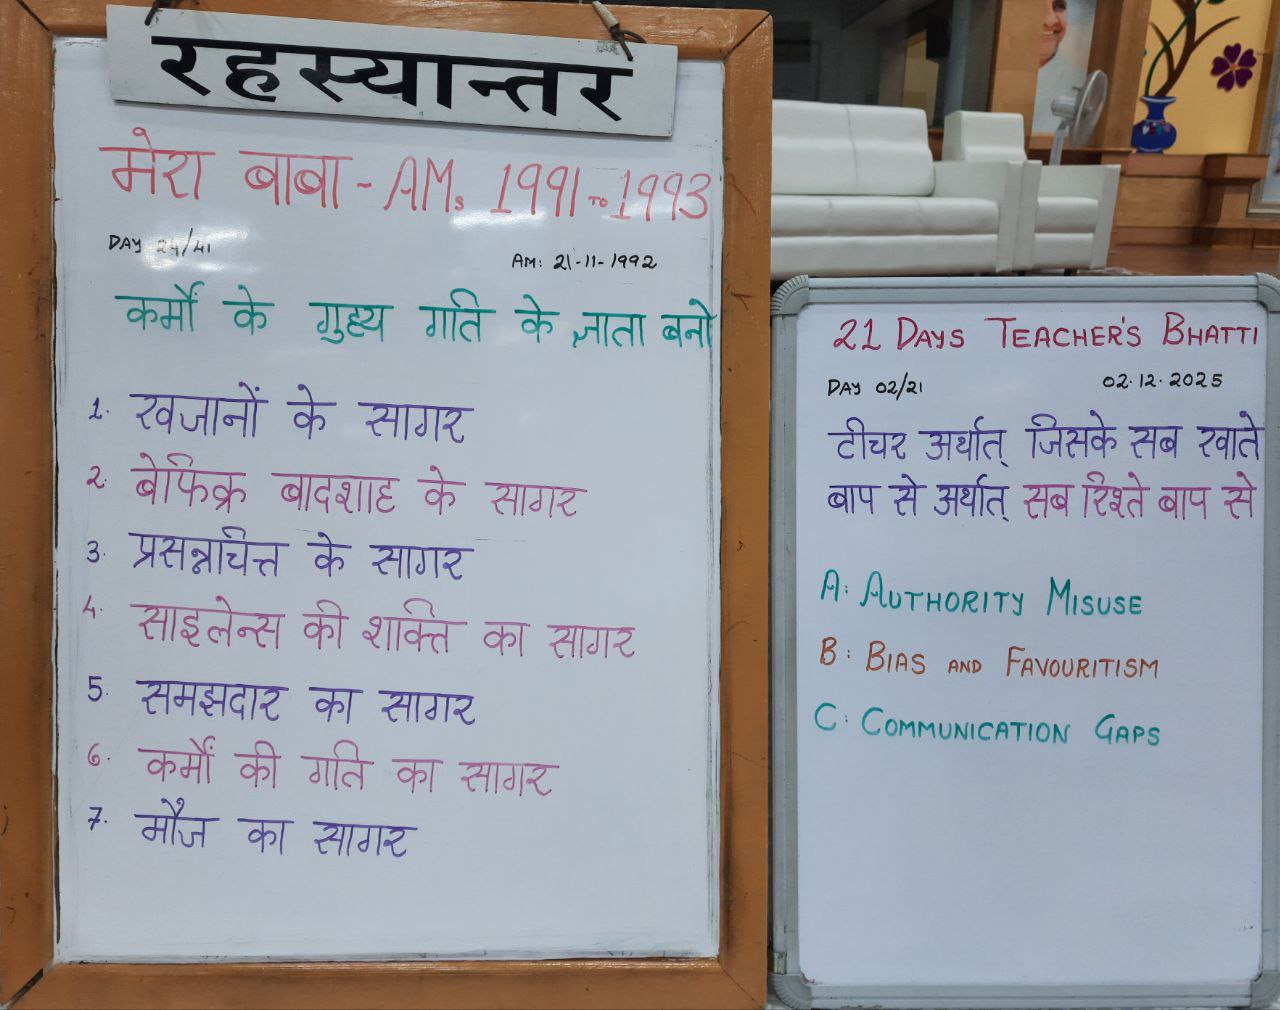 रहस्यान्तर
मेरा बाबा - AMs 1991 TO 1993
DAY 24/41
AM: 21-11-1992
कर्मों के गुह्य गति के ज्ञाता बनो
1. खजानों के सागर
2. बेफिक्र बादशाह के सागर
3. प्रसन्नचित्त के सागर
4. साइलेन्स की शक्ति का सागर
5. समझदार का सागर
6. कर्मों की गति का सागर
7. मौज का सागर
21 DAYS TEACHER'S BHATTI
DAY 02/21
02.12.2025
टीचर अर्थात् जिसके सब खाते
बाप से अर्थात् सब रिश्ते बाप से
A: AUTHORITY MISUSE
B: BIAS AND FAVOURITISM
C: COMMUNICATION GAPS